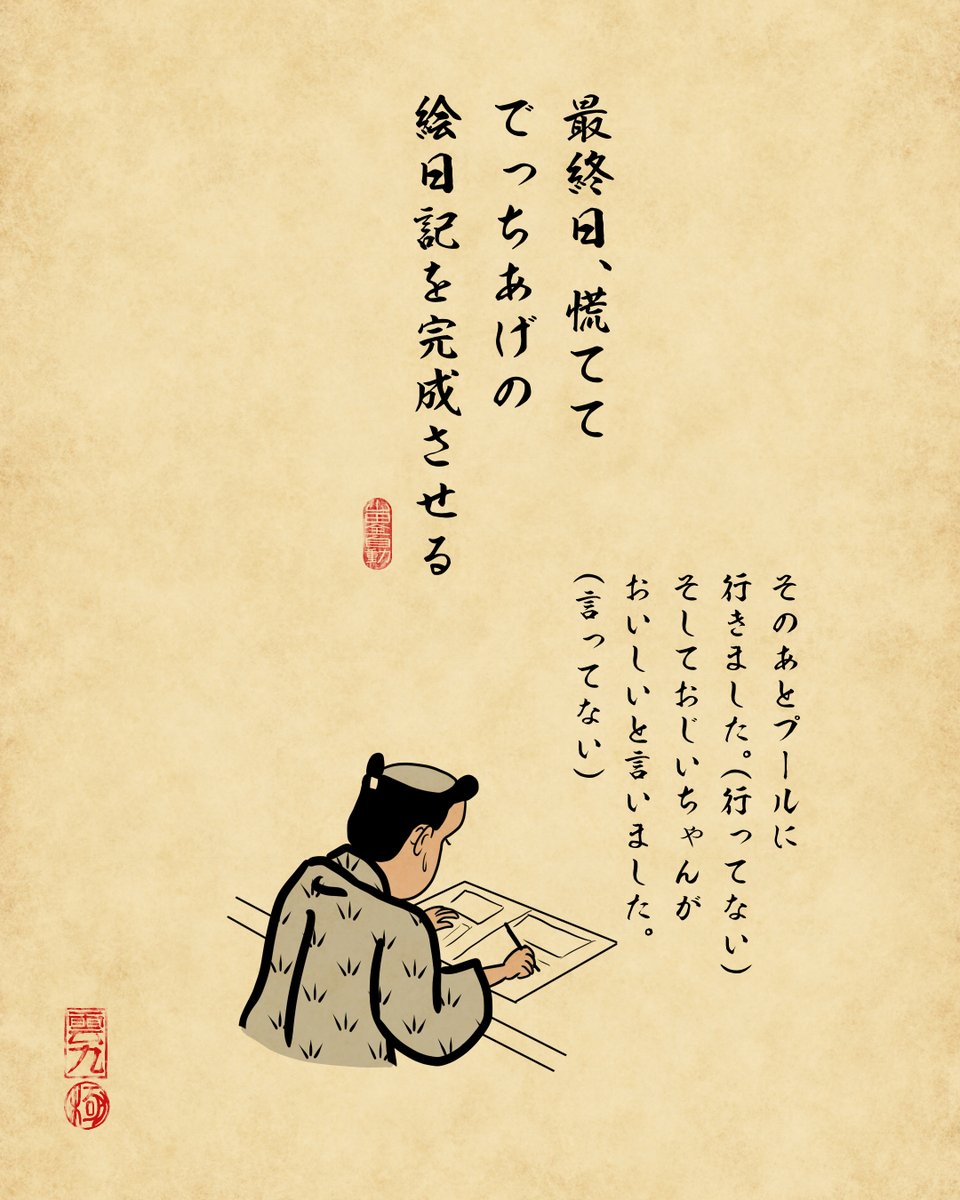 最終日、慌てて
でっちあげの
絵日記を完成させる
そのあとプールに
行きました。(行ってない)
そしておじいちゃんが
おいしいと言いました。
(言ってない)